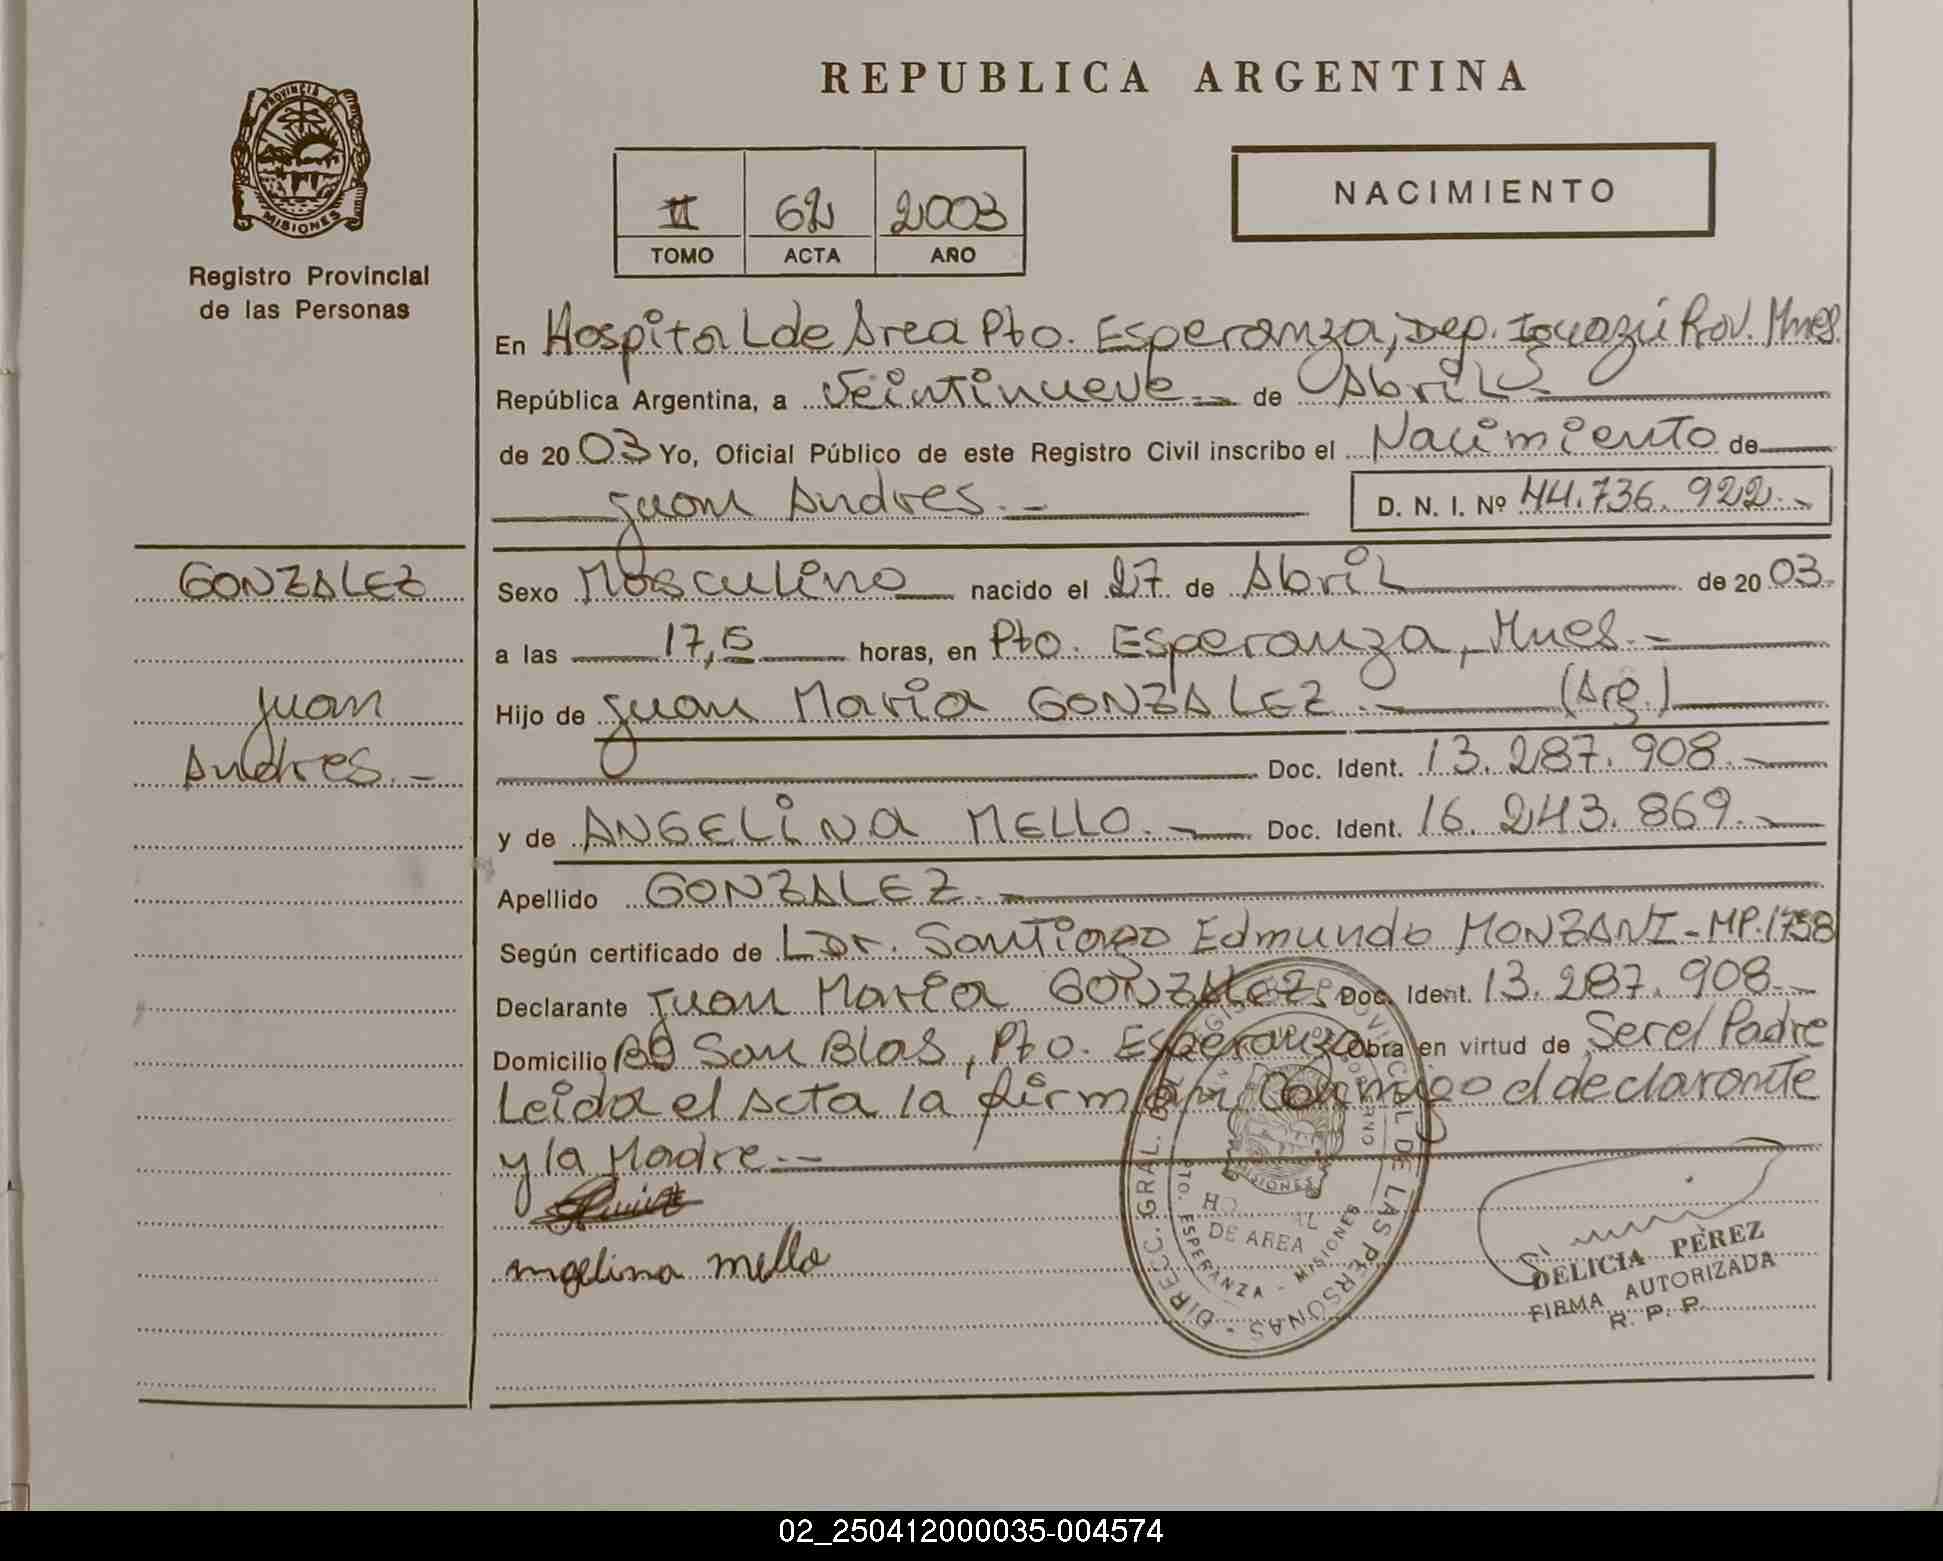 REPUBLICA ARGENTINA
PROVINCIA DE
MISIONES
Registro Provincial
de las Personas
II 62 2003
TOMO ACTA AÑO
NACIMIENTO
En Hospital de Area Pto. Esperanza, Dep. Iguazú Prov. Mnes.
República Argentina, a Veintinueve.- de Abril.-
de 2003 Yo, Oficial Público de este Registro Civil inscribo el Nacimiento de
Juan Andres.-
D. N. I. Nº 44.736.922.-
GONZALEZ
Juan
Andres.-
Sexo Masculino nacido el 27 de Abril de 2003.
a las 17,15 horas, en Pto. Esperanza, Mnes.-
Hijo de Juan Maria GONZALEZ.- (Arg.)
Doc. Ident. 13.287.908.-
y de ANGELINA MELLO.- Doc. Ident. 16.243.869.-
Apellido GONZALEZ.-
Según certificado de Dr. Santiago Edmundo MONZANI-MP.1758
Declarante Juan Maria GONZALEZ. Doc. Ident. 13.287.908.-
Domicilio Bº San Blas, Pto. Esperanza Obra en virtud de Ser el Padre
Leida el Acta la firman Conmigo el declarante
y la Madre.-
angelina mello
DIRECC. GRAL. DEL REGISTRO PROVINCIAL DE LAS PERSONAS
MISIONES
DE AREA
PTO. ESPERANZA - MISIONES
DELICIA PEREZ
FIRMA AUTORIZADA
R. P. P.
02_250412000035-004574